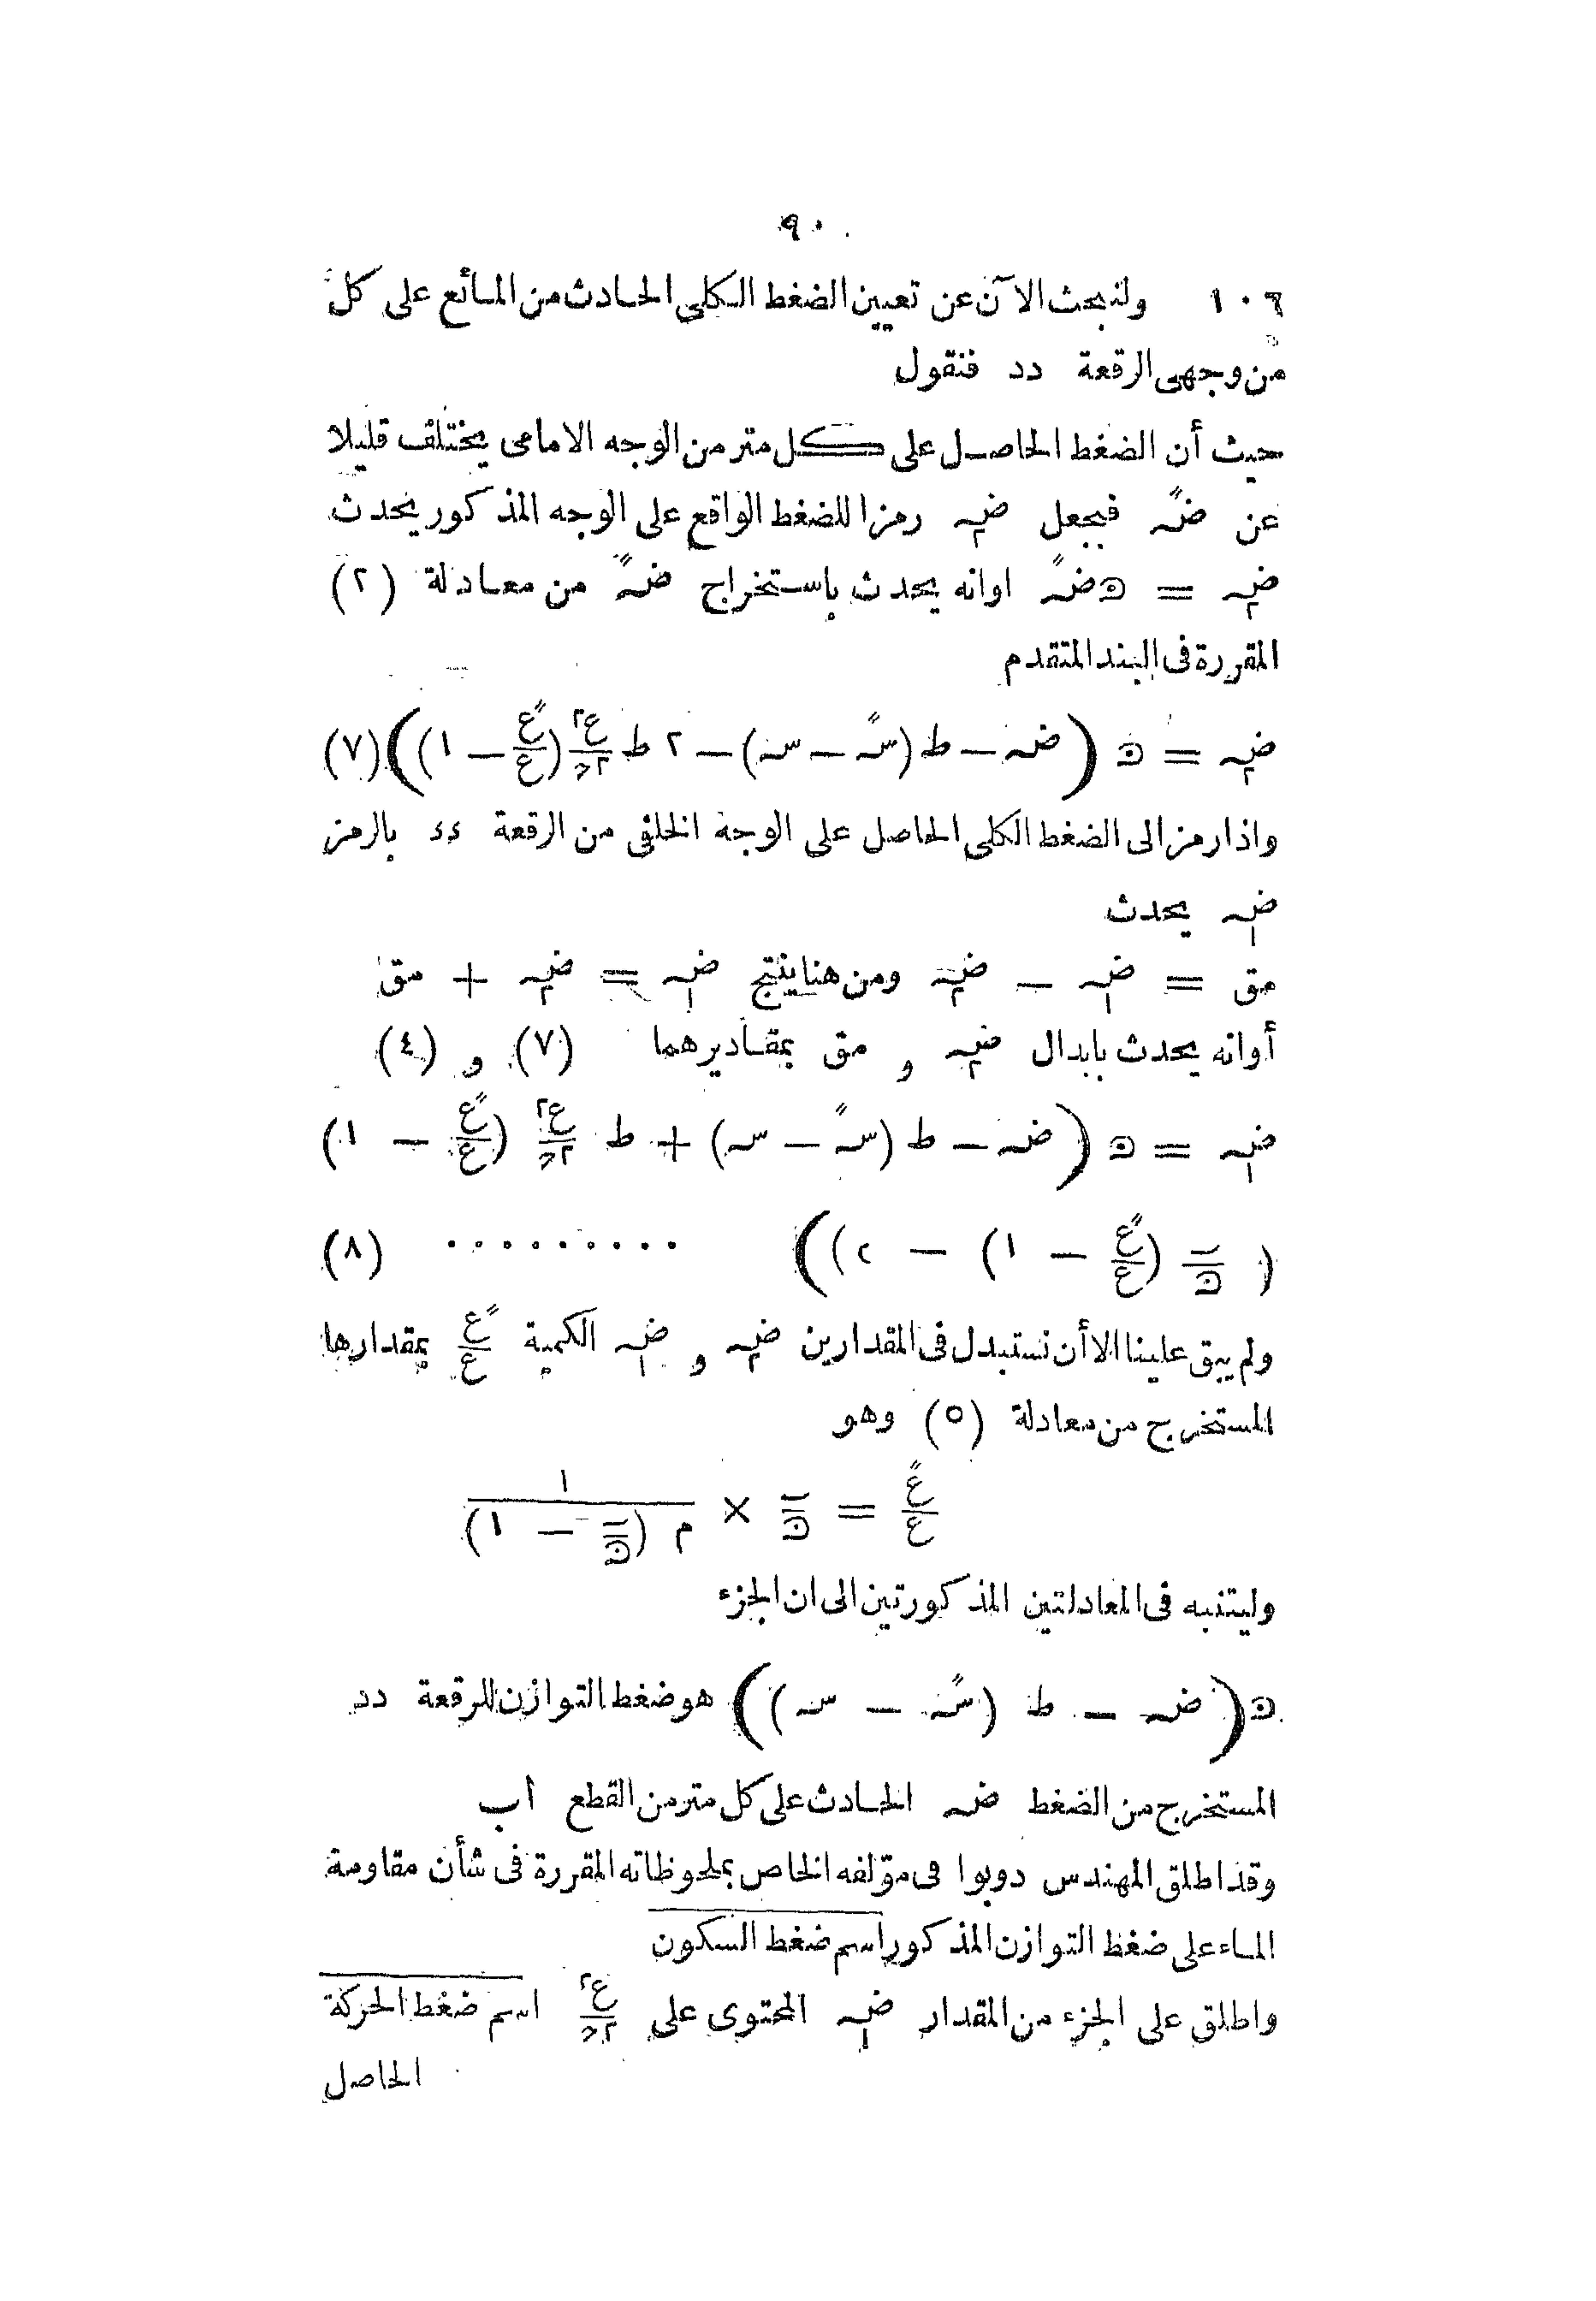 ٩٠
١٠٦ ولنبحث الآن عن تعيين الضغط الكلى الحادث من المائع على كل
من وجهى الرقعة دد فنقول
حيث أن الضغط الحاصل على كل متر من الوجه الامامى يختلف قليلا
عن ضه″ فبجعل ضه٢ رمزا للضغط الواقع على الوجه المذكور يحدث
ضه٢ = ں ضه″ اوانه يحدث باستخراج ضه″ من معادلة (٢)
المقررة فى البند المتقدم
ضه٢ = ں (ضه − ط (سه″ − سه) − ٢ ط ع٢/٢ح (ع″/ع − ١)) (٧)
واذا رمز الى الضغط الكلى الحاصل على الوجه الخلفى من الرقعة دد بالرمز
ضه١ يحدث
مق = ضه١ − ضه٢ ومن هنا ينتج ضه١ = ضه٢ + مق
أوانه يحدث بابدال ضه٢ و مق بمقاديرهما (٧) و (٤)
ضه١ = ں (ضه − ط (سه″ − سه) + ط ع٢/٢ح (ع″/ع − ١)
( ب/ں (ع″/ع − ١) − ٢)) ......... (٨)
ولم يبق علينا الا أن نستبدل فى المقدارين ضه٢ و ضه١ الكمية ع″/ع بمقدارها
المستخرج من معادلة (٥) وهو
ع″/ع = ب/ں × ١/م (ب/ں − ١)
وليتنبه فى المعادلتين المذكورتين الى ان الجزء
ں (ضه − ط (سه″ − سه)) هو ضغط التوازن للرقعة دد
المستخرج من الضغط ضه الحادث على كل متر من القطع أب
وقد اطلق المهندس دوبوا فى مؤلفه الخاص بملحوظاته المقررة فى شأن مقاومة
الماء على ضغط التوازن المذكور اسم ضغط السكون
واطلق على الجزء من المقدار ضه١ المحتوى على ع٢/٢ح اسم ضغط الحركة
الحاصل